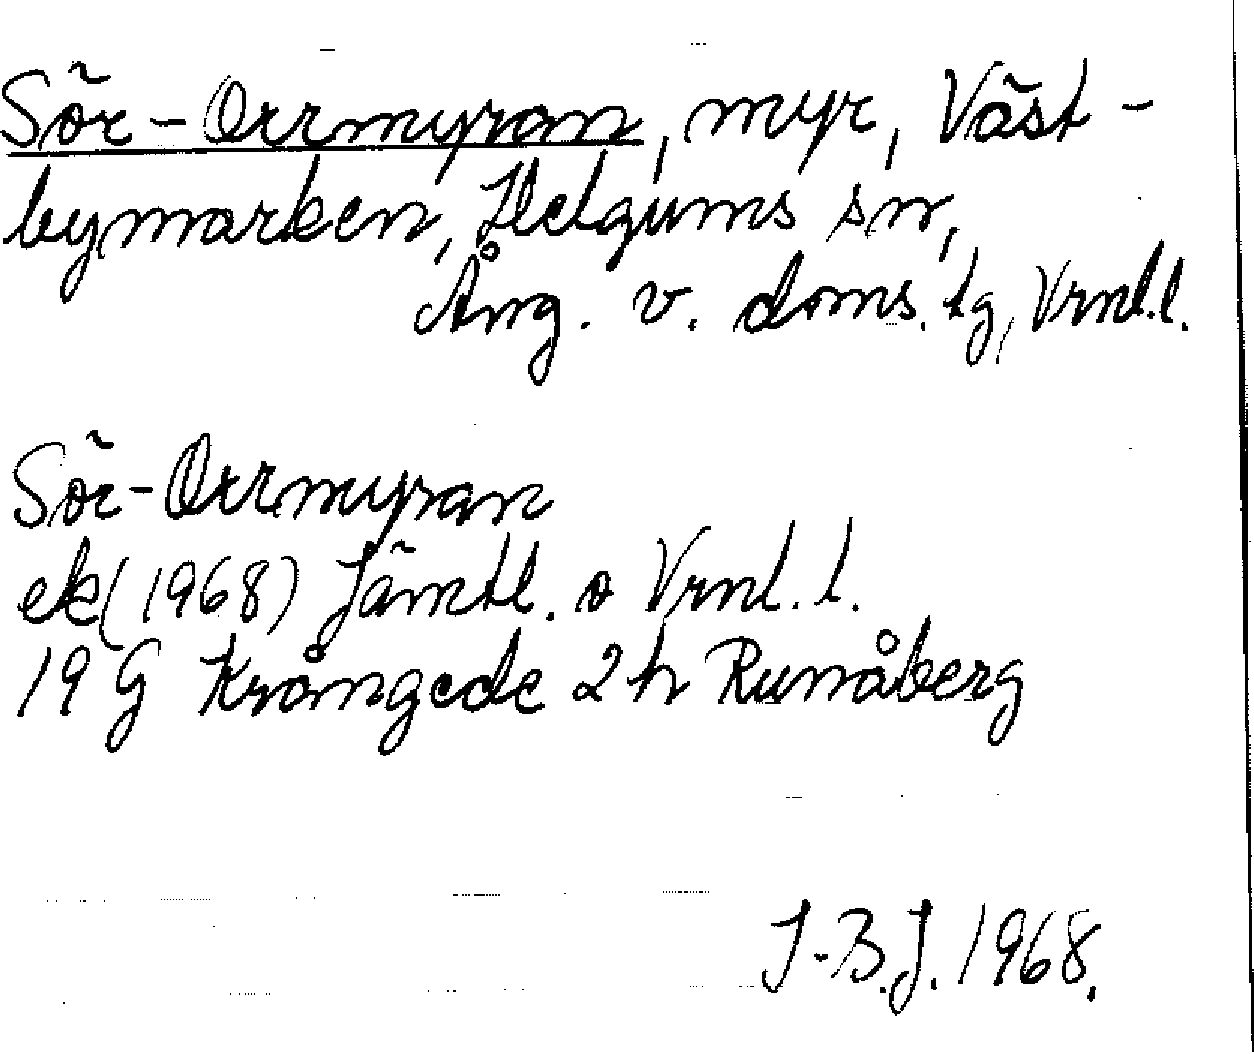 Sör-Orrmyran, myr, Väst-
bymarken, Helgums sn,
Ång. v. doms. tg, Vrnl.l.
Sör-Orrmyran
ek (1968) Jämtl. o Vrnl. l.
19 G Krångede 2 h Runåberg
J-B.J. 1968.